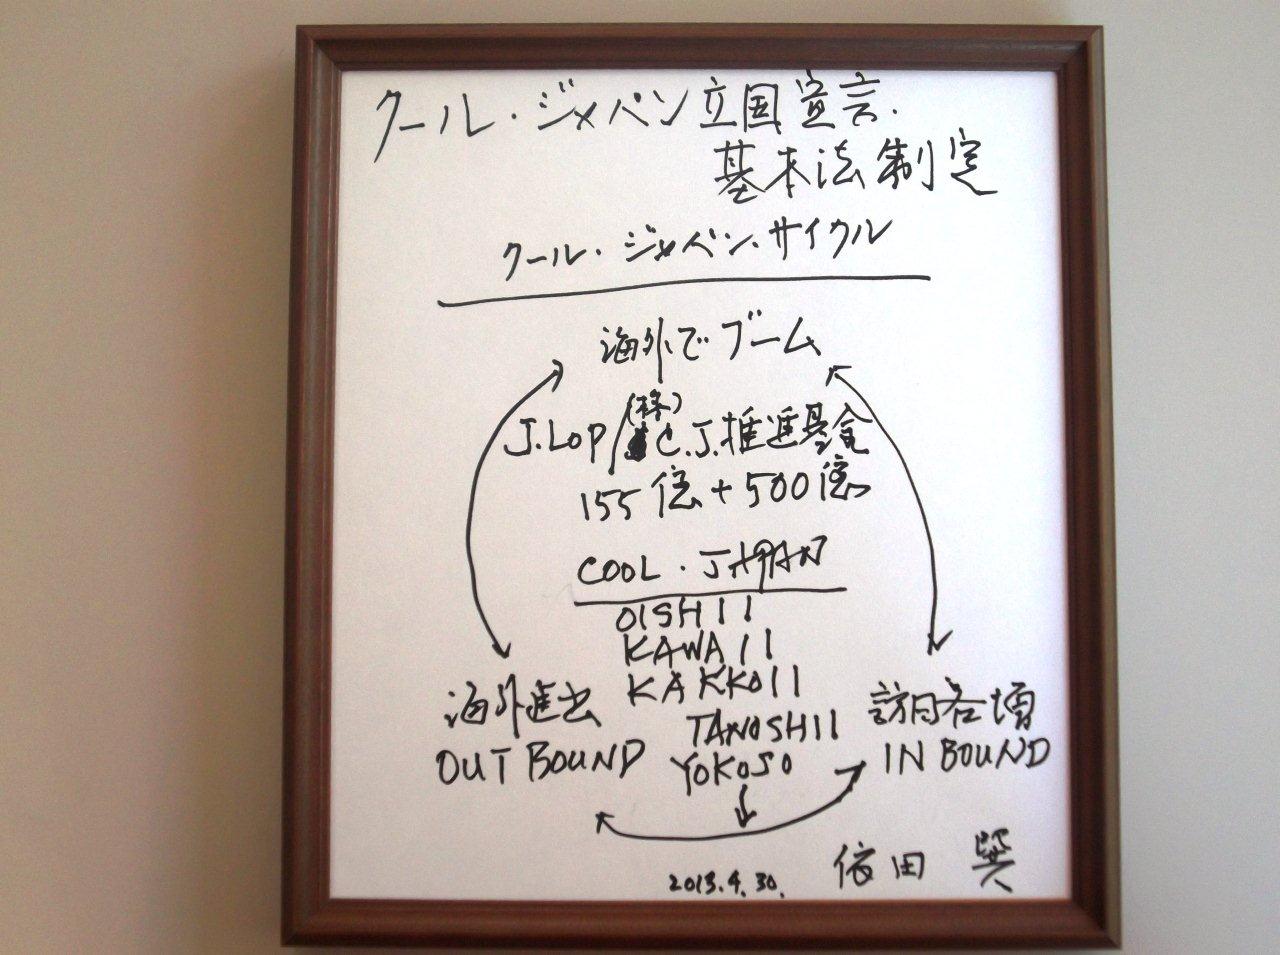 クール・ジャパン立国宣言.
基本法制定
クール・ジャパン・サイクル
海外でブーム
(株)
J.LOP/C.J.推進基金
155億+500億
COOL・JAPAN
OISHII
KAWAII
KAKKOII
TANOSHII
YOKOSO
海外進出
OUTBOUND
訪日客増
INBOUND
2013.4.30.
依田 巽